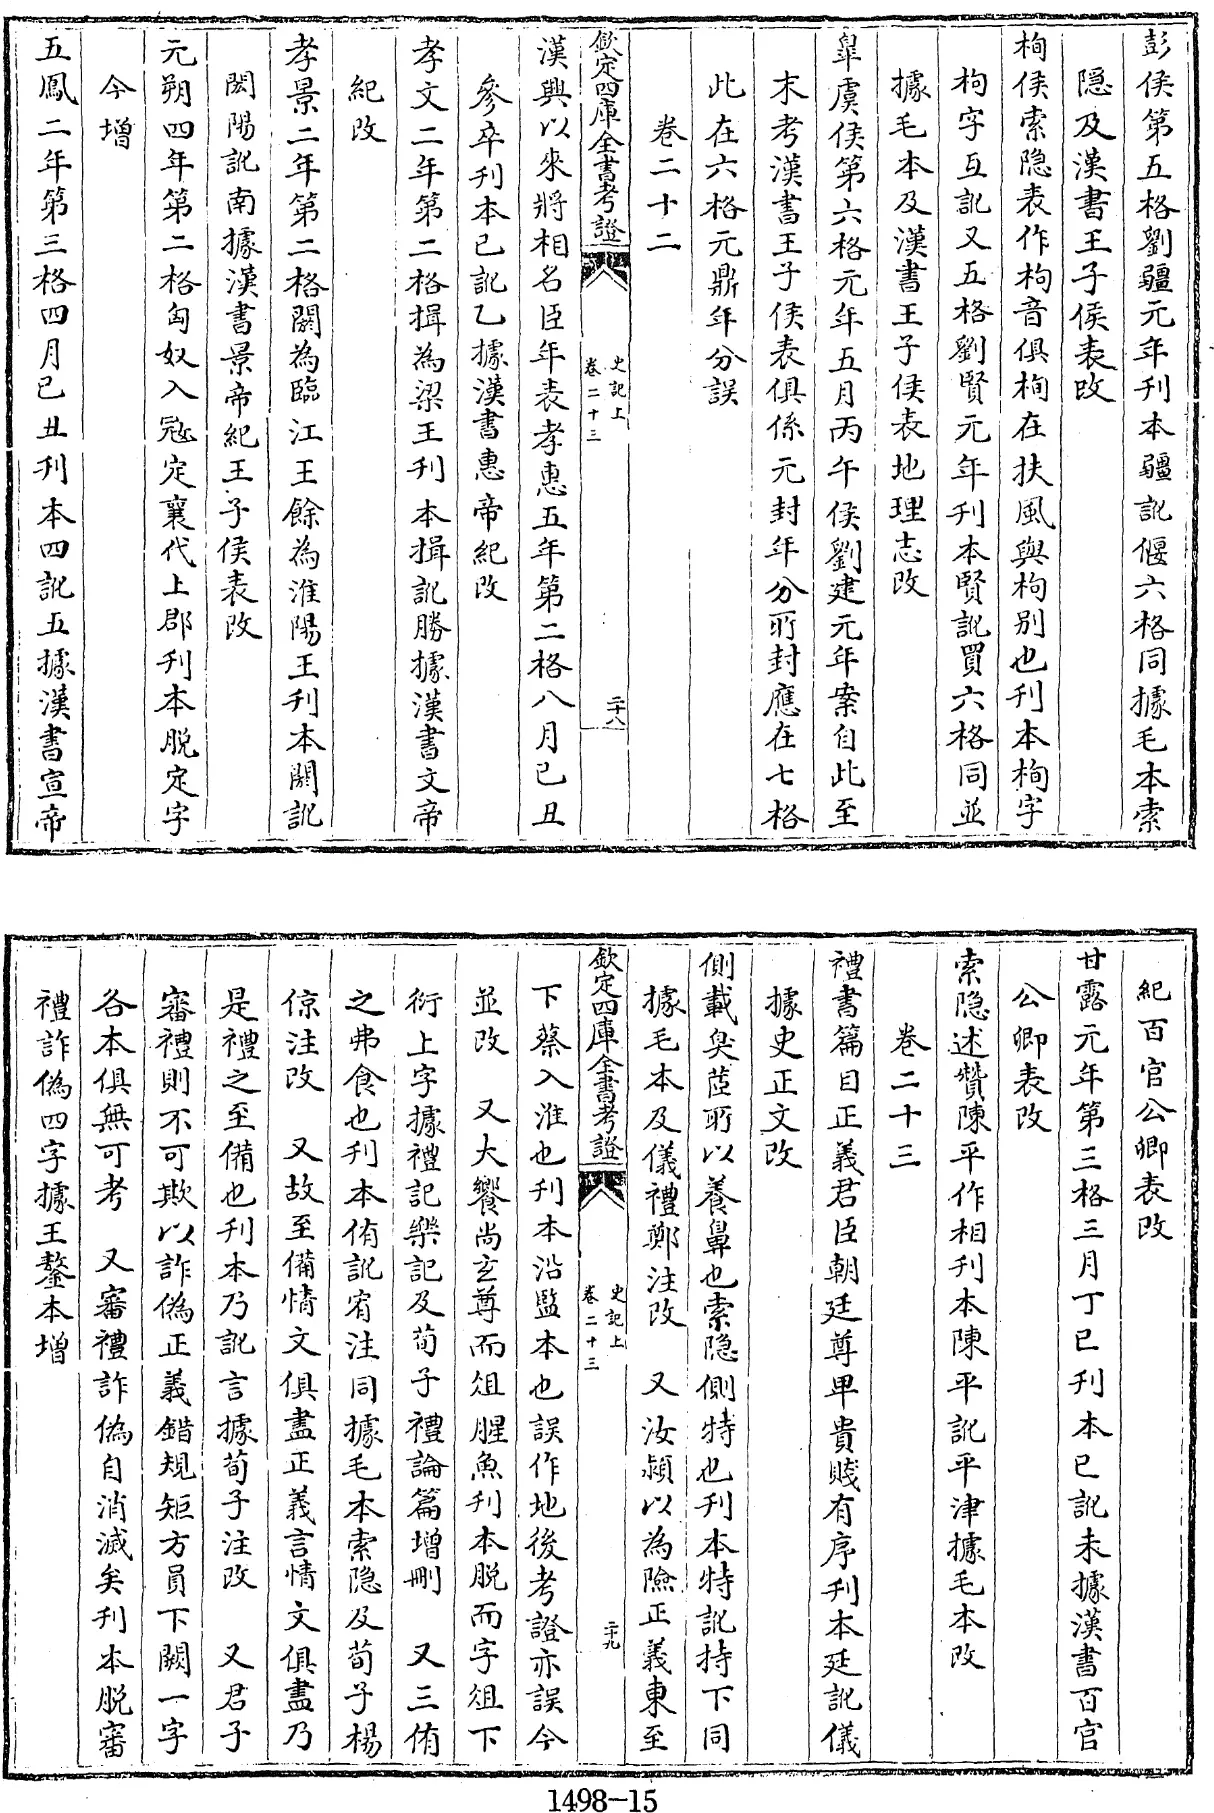 彭侯第五格劉疆元年刋本疆訛偃六格同據毛本索
隐及漢書王子侯表改
栒侯索隐表作枸音俱栒在扶風與枸别也刋本栒字
枸字互訛又五格劉賢元年刋本賢訛買六格同並
據毛本及漢書王子侯表地理志改
皐虞侯第六格元年五月丙午侯劉建元年案自此至
末考漢書王子侯表俱係元封年分所封應在七格
此在六格元鼎年分誤
卷二十二
欽定四庫全書考證
史記上
卷二十三
二十八
漢興以來將相名臣年表孝惠五年第二格八月已丑
參卒刋本已訛乙據漢書惠帝紀改
孝文二年第二格揖為梁王刋本揖訛勝據漢書文帝
紀改
孝景二年第二格閼為臨江王餘為淮陽王刋本閼訛
閎陽訛南據漢書景帝紀王子侯表改
元朔四年第二格匈奴入冦定襄代上郡刋本脱定字
今增
五鳳二年第三格四月已丑刋本四訛五據漢書宣帝
紀百官公卿表改
甘露元年第三格三月丁已刋本已訛未據漢書百官
公卿表改
索隐述贊陳平作相刋本陳平訛平津據毛本改
卷二十三
禮書篇目正義君臣朝廷尊卑貴賤有序刋本廷訛儀
據史正文改
側載臭茝所以養鼻也索隐側特也刋本特訛持下同
據毛本及儀禮鄭注改　又汝潁以為險正義東至
欽定四庫全書考證
史記上
卷二十三
二十九
下蔡入淮也刋本沿監本也誤作地後考證亦誤今
並改　又大饗尚玄尊而俎腥魚刋本脱而字俎下
衍上字據禮記樂記及荀子禮論篇增刪　又三侑
之弗食也刋本侑訛宥注同據毛本索隐及荀子楊
倞注改　又故至備情文俱盡正義言情文俱盡乃
是禮之至備也刋本乃訛言據荀子注改　又君子
審禮則不可欺以詐偽正義錯規矩方員下闕一字
各本俱無可考　又審禮詐偽自消滅矣刋本脱審
禮詐偽四字據王鏊本增
1498-15